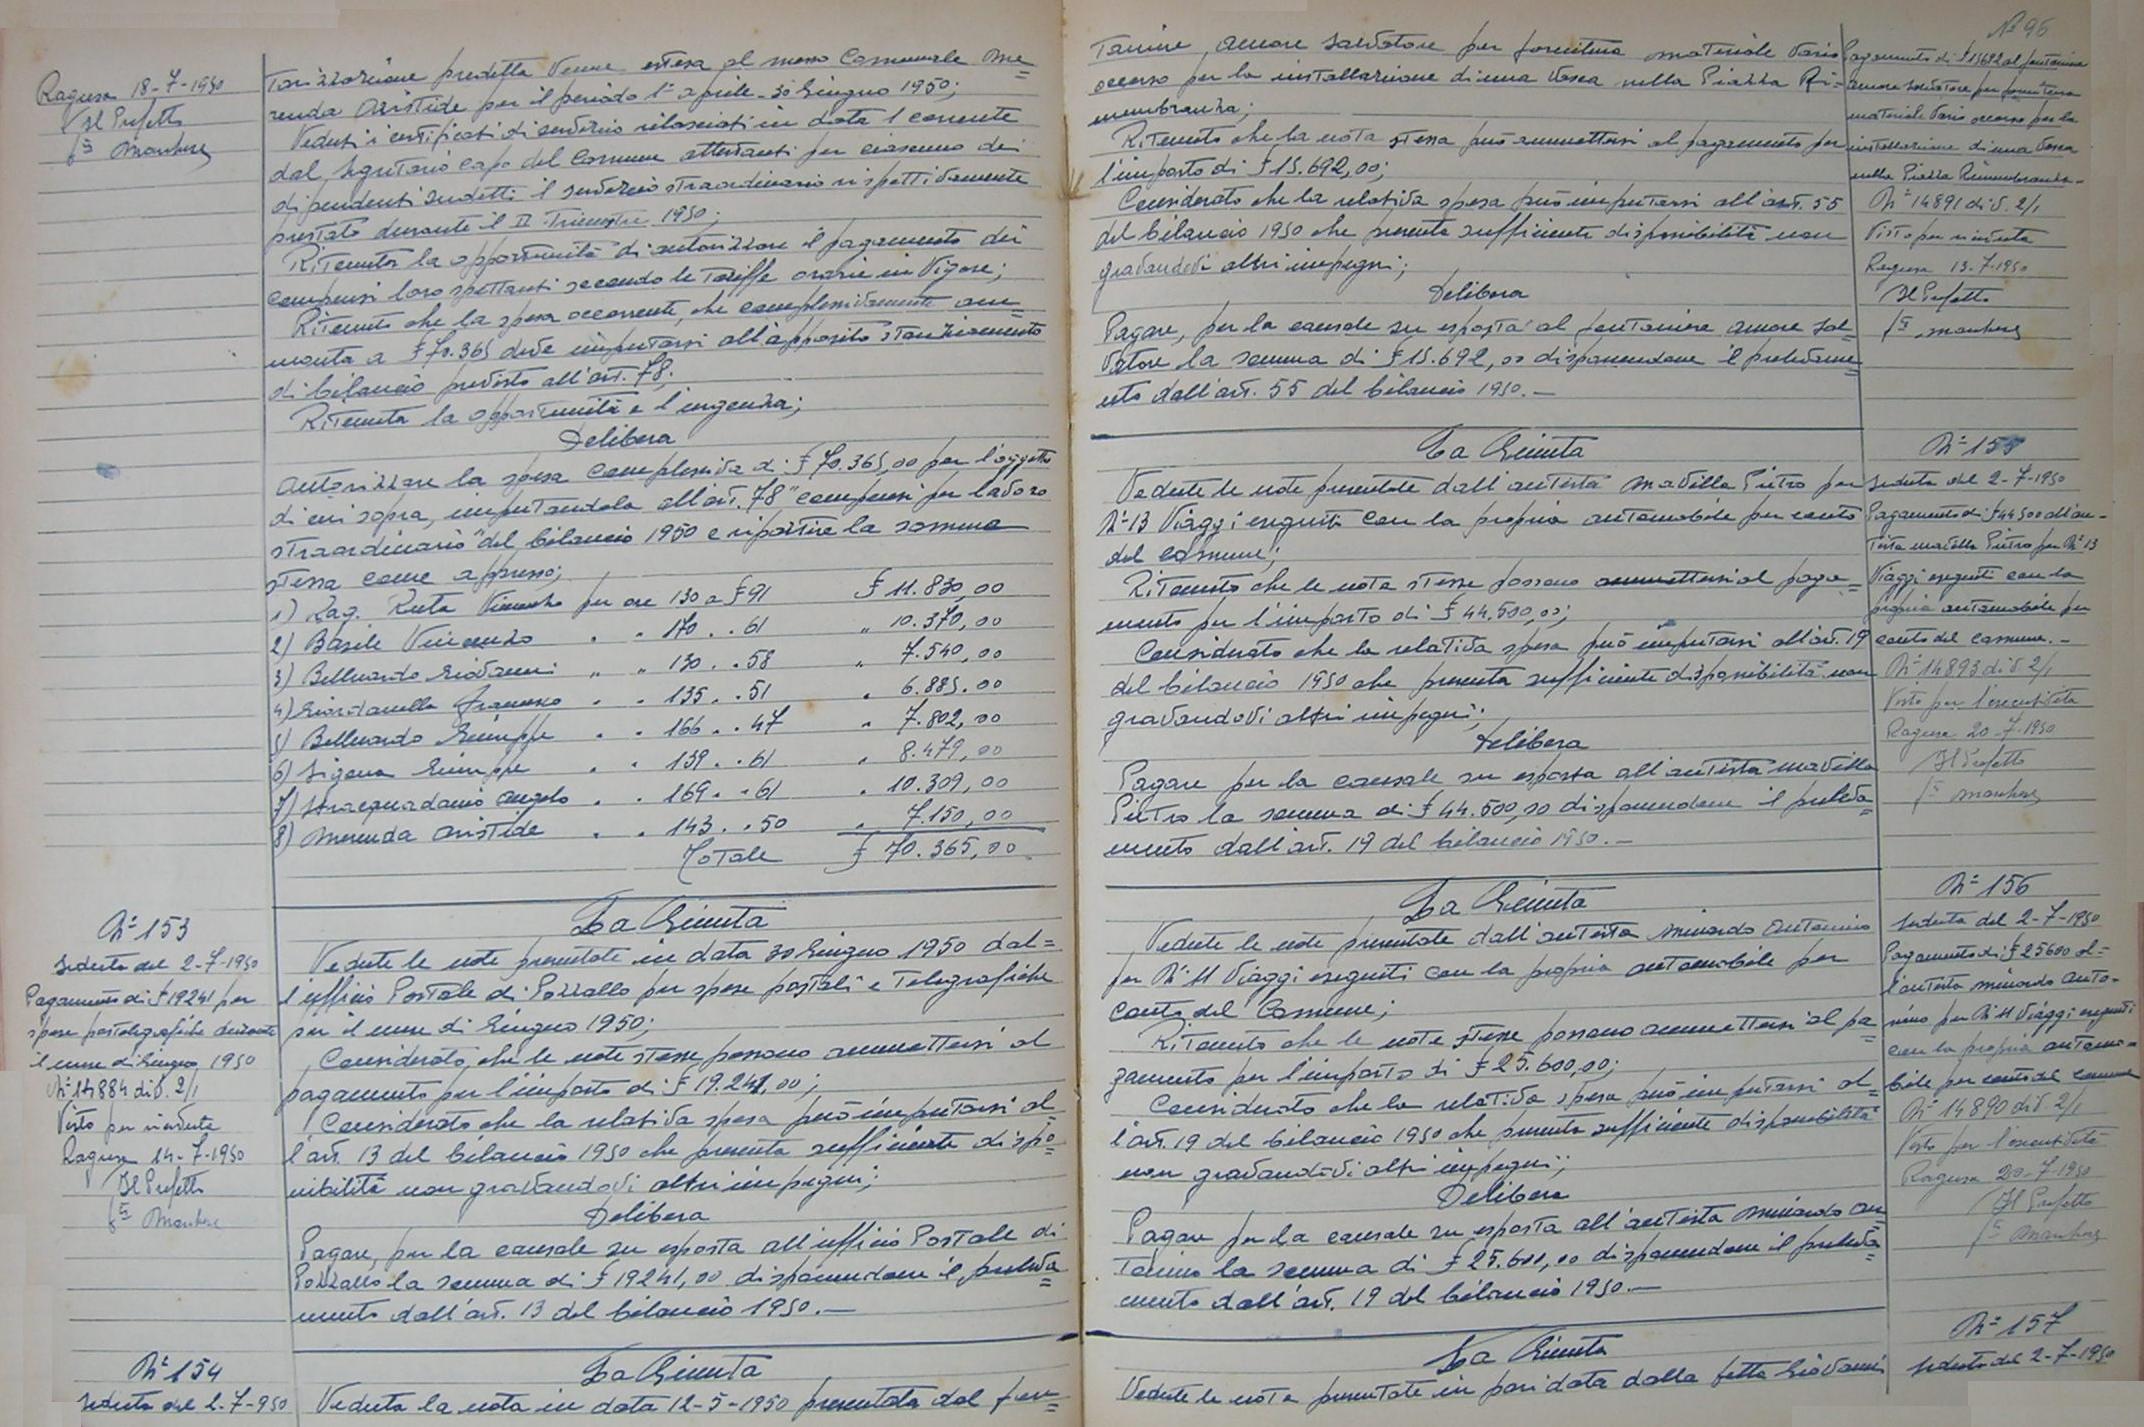 Ragusa 18-7-1950
Il Prefetto
f.to
torizzazione predetta venne estesa al messo Comunale Me=
renda Aristide per il periodo 1° aprile - 30 Giugno 1950;
Veduti i certificati di servizio rilasciati in data 1 corrente
dal Segretario capo del Comune attestanti per ciascuno dei
dipendenti sudetti il servizio straordinario rispettivamente
prestato durante il II Trimestre 1950;
Ritenuta la opportunità di autorizzare il pagamento dei
compensi loro spettanti secondo le tariffe orarie in vigore;
Ritenuto che la spesa occorrente, che complessivamente am=
monta a £ 70.365 deve imputarsi all'apposito stanziamento
di bilancio previsto all'art. 78;
Ritenuta la opportunità e l'urgenza;
Delibera
Autorizzare la spesa complessiva di £ 70.365,00 per l'oggetto
di cui sopra, imputandola all'art. 78 "compensi per lavoro
straordinario" del bilancio 1950 e ripartire la somma
stessa come appresso;
1) Rag. Ruta Vincenzo per ore 130 a £ 91 £ 11.830,00
2) Basile Vincenzo " " 170 " " 61 " 10.370,00
3) Belluardo Giovanni " " 130 " " 58 " 7.540,00
4) Giordanella Francesco " " 135 " " 51 " 6.885,00
5) Belluardo Giuseppe " " 166 " " 47 " 7.802,00
6) Sigona Giuseppe " " 139 " " 61 " 8.479,00
7) Stracquadanio Angelo " " 169 " " 61 " 10.309,00
8) Merenda Aristide " " 143 " " 50 " 7.150,00
Totale £ 70.365,00
N° 153
Seduta del 2-7-1950
Pagamento di £ 19241 per
spese postelegrafiche durante
il mese di Giugno 1950
N° 14884 div. 2/1
Visto per veduta
Ragusa 14-7-1950
Il Prefetto
f.to
La Giunta
Vedute le note presentate in data 30 Giugno 1950 dal=
l'ufficio Postale di Pozzallo per spese postali e telegrafiche
per il mese di Giugno 1950;
Considerato che le note stesse possono ammettersi al
pagamento per l'importo di £ 19.241,00;
Considerato che la relativa spesa può imputarsi al=
l'art. 13 del bilancio 1950 che presenta sufficiente dispo=
nibilità non gravandovi altri impegni;
Delibera
Pagare, per la causale su esposta all'ufficio Postale di
Pozzallo la somma di £ 19241,00 disponendone il preleva=
mento dall'art. 13 del bilancio 1950.-
N° 154
Seduta del 2-7-950
La Giunta
Veduta la nota in data 12-5-1950 presentata dal fon=
N° 96
taniere, Amore Salvatore per fornitura materiale vario
occorso per la installazione di una vasca nella Piazza Ri=
membranza;
Ritenuto che la nota stessa può ammettersi al pagamento per
l'importo di £ 15.692,00;
Considerato che la relativa spesa può imputarsi all'art. 55
del bilancio 1950 che presenta sufficiente disponibilità non
gravandovi altri impegni;
Delibera
Pagare, per la causale su esposta al fontaniere Amore Sal=
vatore la somma di £ 15.692,00 disponendone il prelevame=
nto dall'art. 55 del bilancio 1950.-
Pagamento di £ 15692 al fontaniere
Amore Salvatore per fornitura
materiale vario occorso per la
installazione di una vasca
nella Piazza Rimembranza.-
N° 14891 div. 2/1
Visto per veduta
Ragusa 13-7-1950
Il Prefetto
f.to
La Giunta
Vedute le note presentate dall'autista Mavilla Pietro per
N° 13 viaggi eseguiti con la propria automobile per conto
del comune;
Ritenuto che le note stesse possono ammettersi al paga=
mento per l'importo di £ 44.500,00;
Considerato che la relativa spesa può imputarsi all'art. 19
del bilancio 1950 che presenta sufficiente disponibilità non
gravandovi altri impegni;
Delibera
Pagare per la causale su esposta all'autista Mavilla
Pietro la somma di £ 44.500,00 disponendone il preleva=
mento dall'art. 19 del bilancio 1950.-
N° 155
Seduta del 2-7-1950
Pagamento di £ 44500 all'au-
tista Mavilla Pietro per N° 13
viaggi eseguiti con la
propria automobile per
conto del comune.-
N° 14893 div. 2/1
Visto per l'esecutività
Ragusa 20-7-1950
Il Prefetto
f.to
La Giunta
Vedute le note presentate dall'autista Minardo Antonino
per N° 11 viaggi eseguiti con la propria automobile per
conto del Comune;
Ritenuto che le note stesse possono ammettersi al pa=
gamento per l'importo di £ 25.600,00;
Considerato che la relativa spesa può imputarsi al=
l'art. 19 del bilancio 1950 che presenta sufficiente disponibilità
non gravandovi altri impegni;
Delibera
Pagare per la causale su esposta all'autista Minardo An=
tonino la somma di £ 25.600,00 disponendone il preleva=
mento dall'art. 19 del bilancio 1950.-
N° 156
Seduta del 2-7-1950
Pagamento di £ 25600 al=
l'autista Minardo Anto-
nino per N° 11 viaggi eseguiti
con la propria automo=
bile per conto del comune
N° 14890 div 2/1
Visto per l'esecutività
Ragusa 20-7-1950
Il Prefetto
f.to
La Giunta
Vedute le note presentate in pari data dalla ditta Giovanni
N° 157
Seduta del 2-7-1950